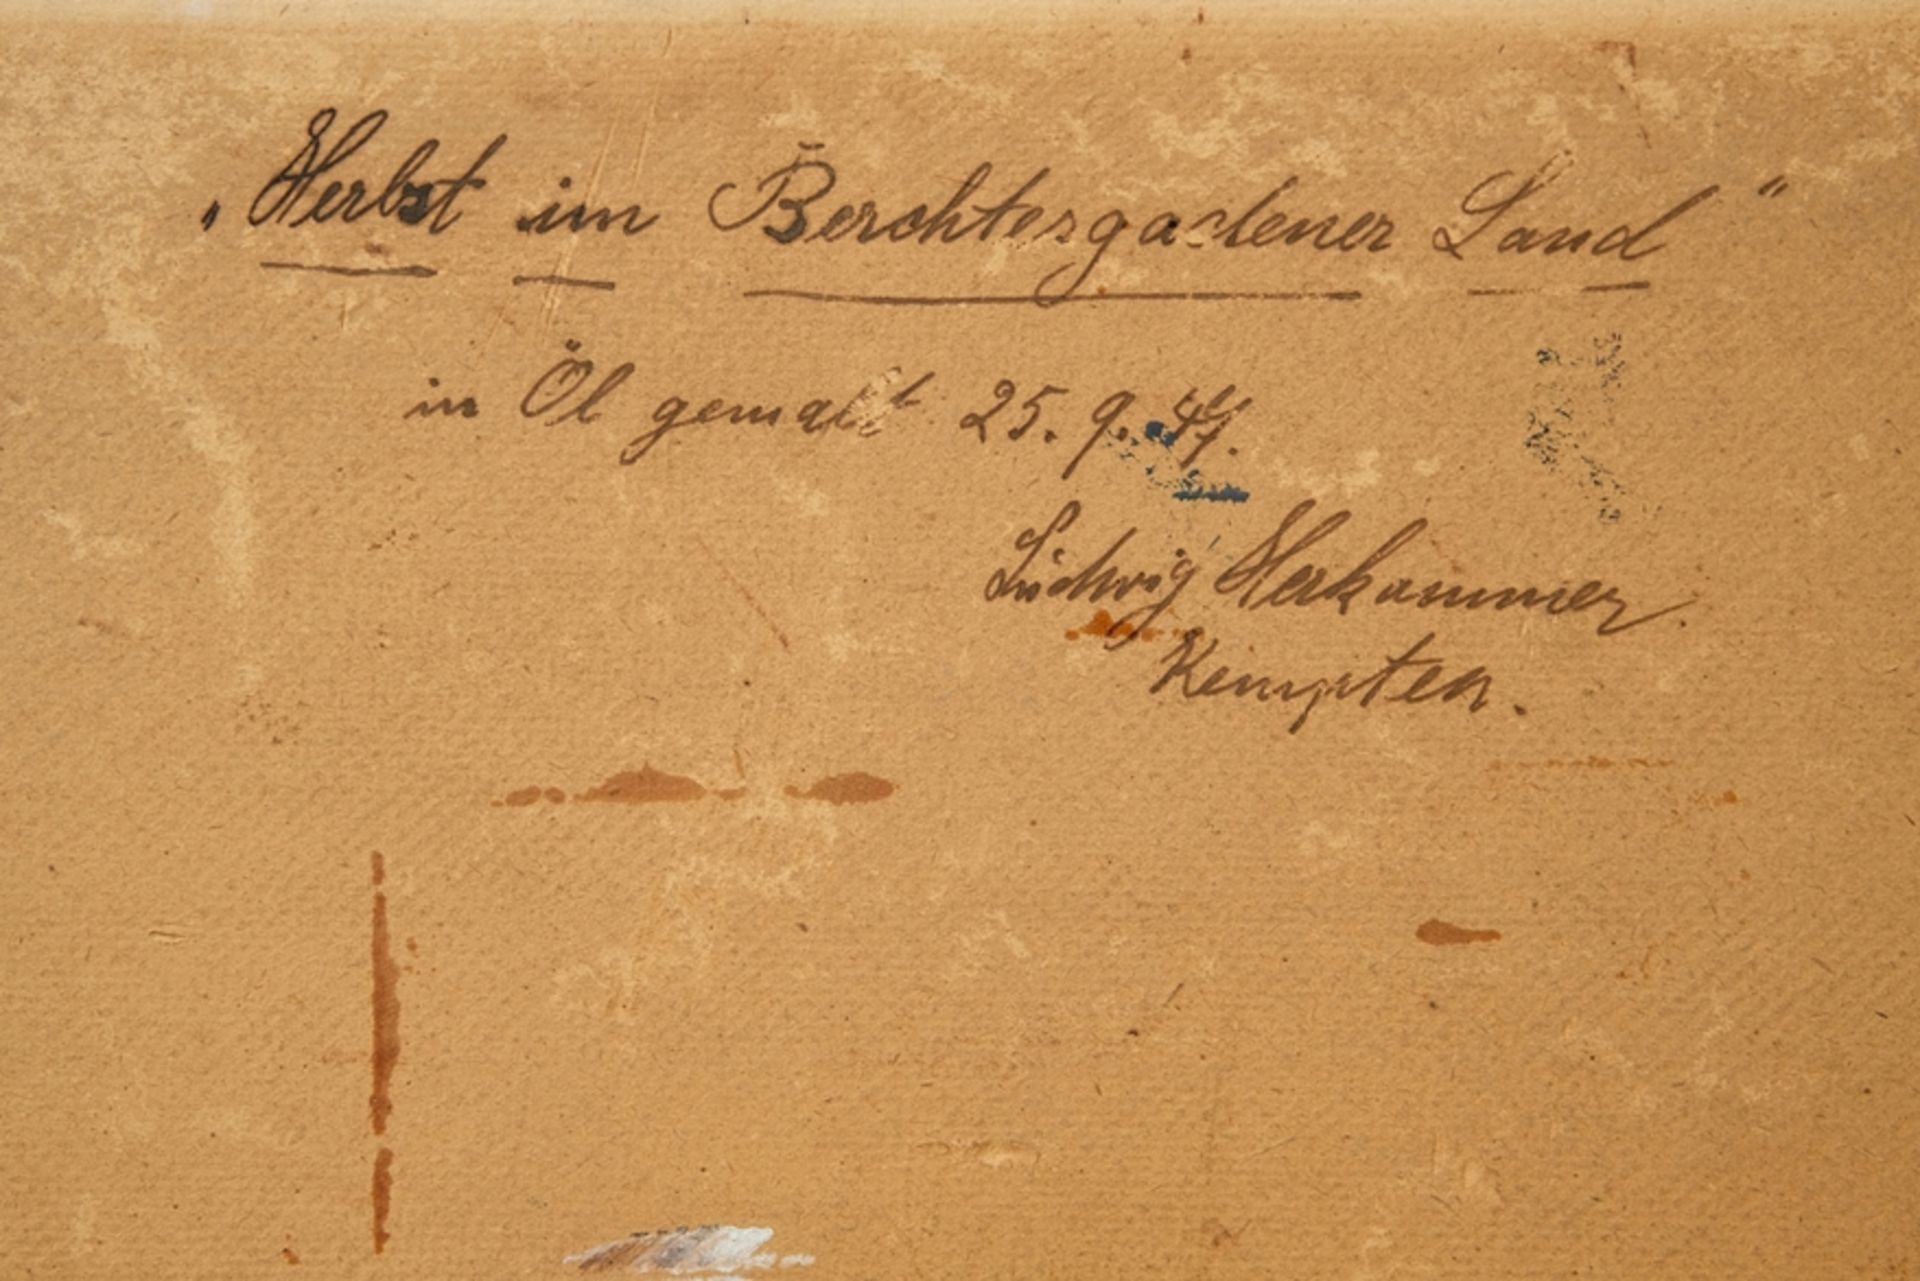 „Herbst im Berchtesgadener Land"
in Öl gemalt 25. 9. 47.
Ludwig Herkommer.
Kempten.